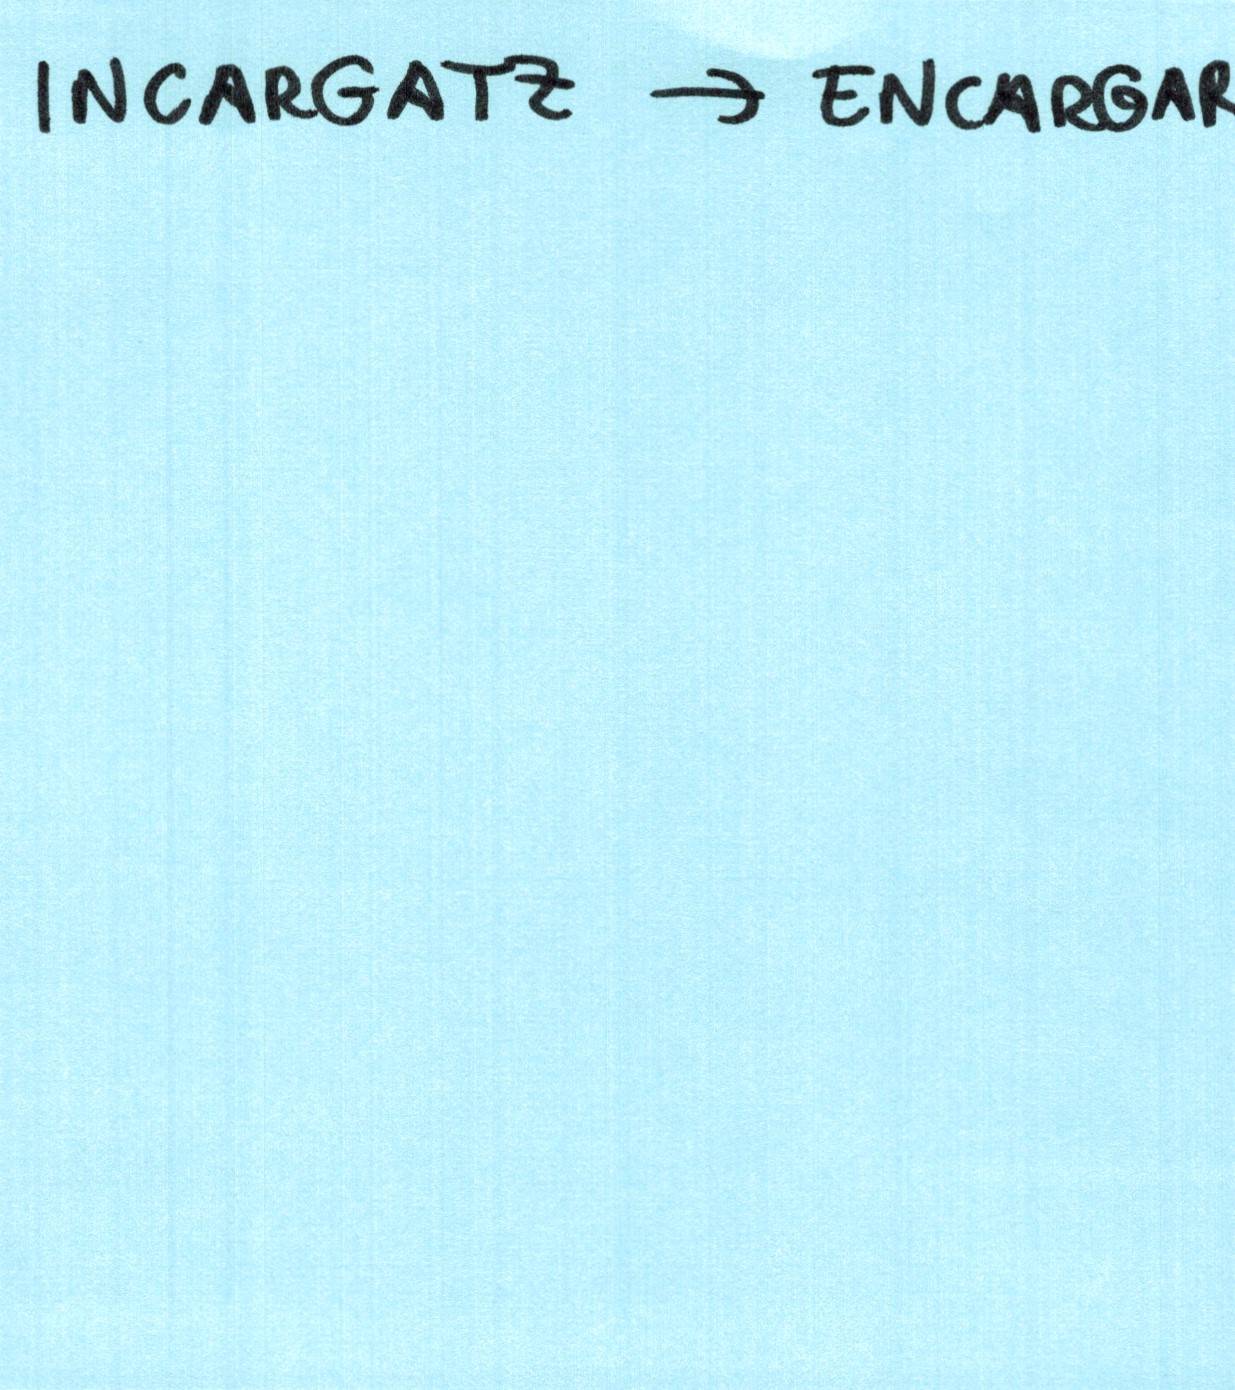 INCARGATZ → ENCARGAR